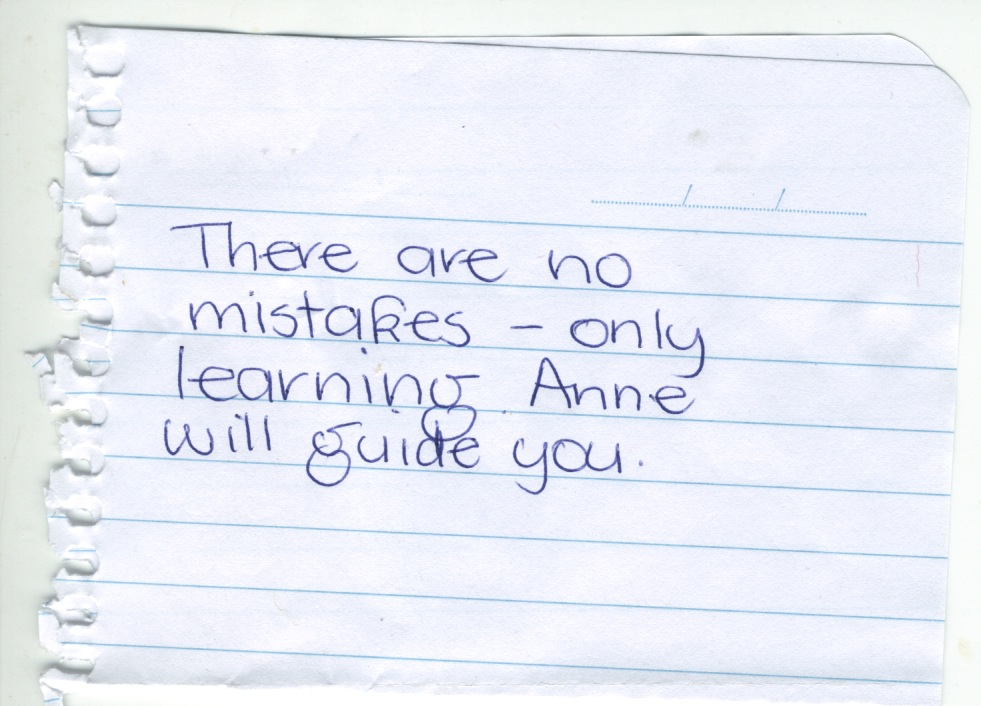 There are no
mistakes – only
learning. Anne
will guide you.